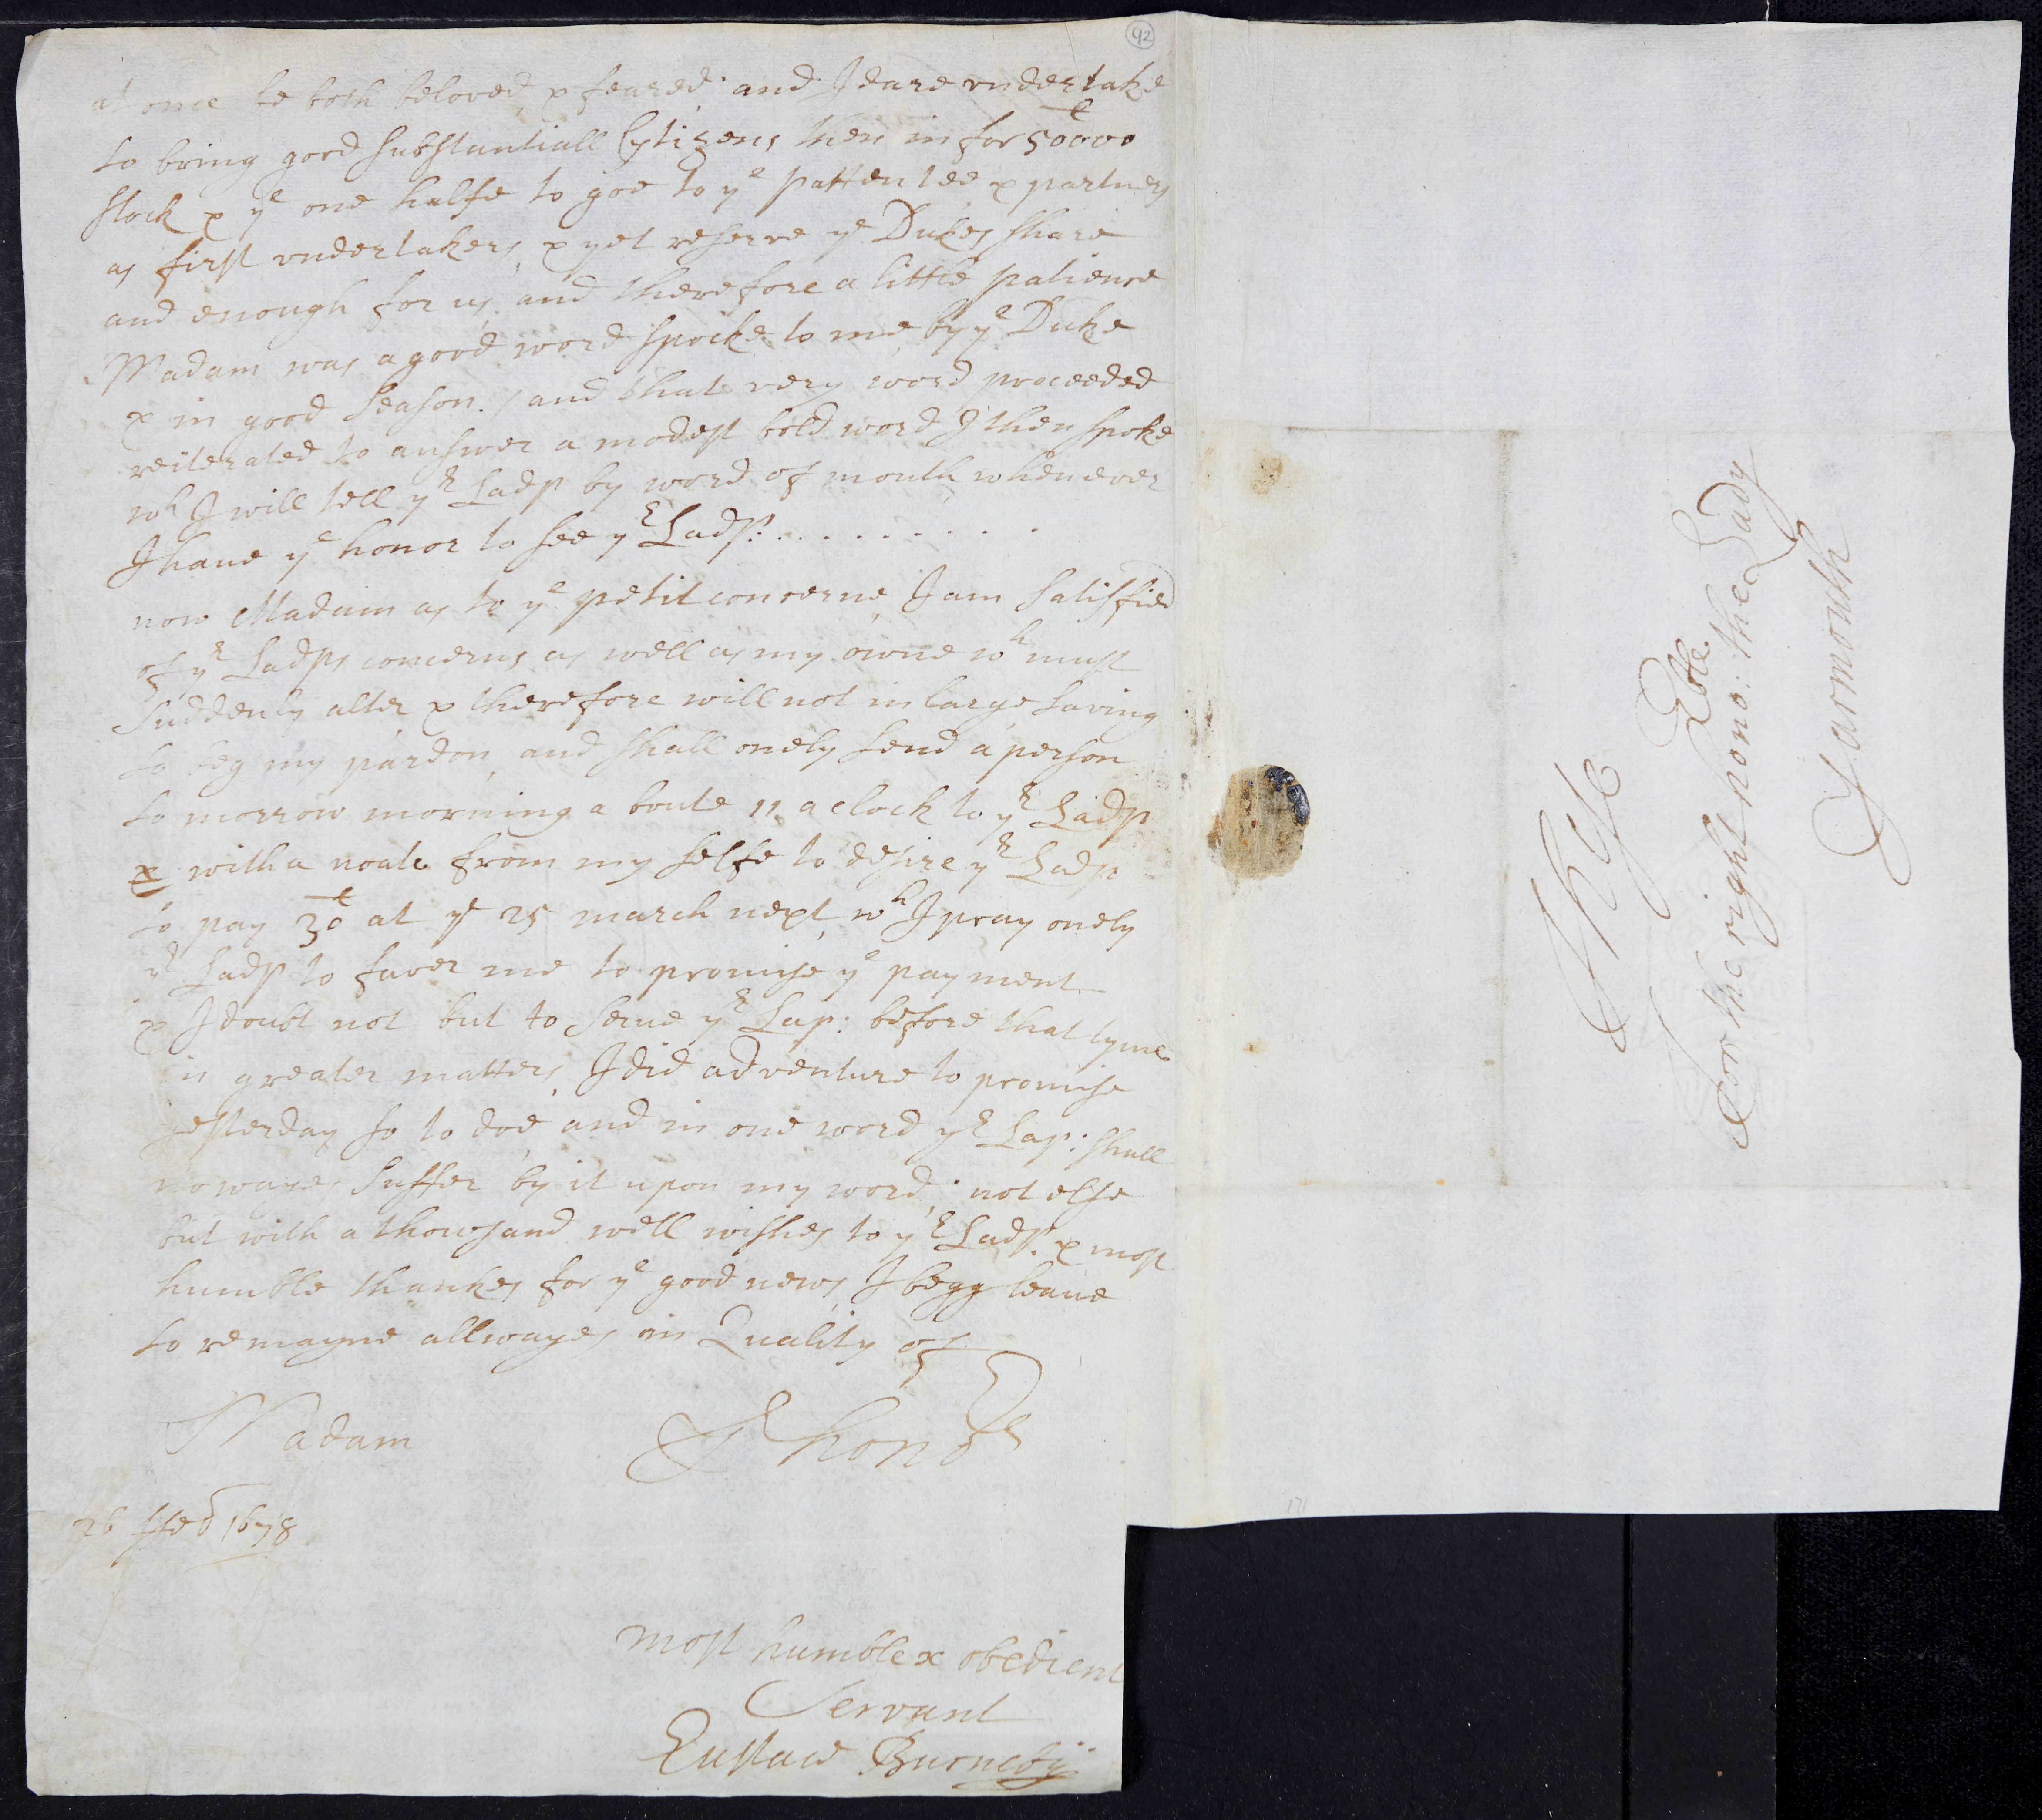 42
at once be both beloved & feared and I dare vndertake
to bring good substantiall Cytizens then in for 50000£
stock & ye one halfe to goe to ye pattentee & partners
as first vndertakers, & yet reserve ye Dukes share
and enough for us, and therefore a little patience
Madam was a good word spocke to me by ye Duke
& in good season./ and that very word proceeded
reiterated to answer a modest bold word I then spoke
wh I will tell yr Ladp by word of mouth whenever
I haue ye honor to see yr Ladp: . . . . . . . . .
now Madam as to ye petit concerne I am satisfied
of yr Ladps concerns as well as my owne wh must
suddenly alter & therefore will not inlarge saving
to beg my pardon, and shall onely send a person
to morrow morning a boute 11 a clock to yr Ladp
& with a noate from my selfe to desire yr Ladp
to pay 30£ at ye 25 march next, wh I pray onely
yr Ladp to faver me to promise ye payment
& I doubt not but to serue yr Lap: before that tyme
in greater matters, I did adventure to promise
yesterday so to doe, and in one word yr Lap: shall
nowayes suffer by it upon my word, not else
but with a thowsand well wishes to yr Ladp. & most
humble thankes for ye good news, I begg leaue
to remayne allwayes in Quality of
Madam
Yr honrs
26 ffeb 1678
most humble & obedient
Servant
Eustace Burneby
Thyse
For the right hono:rble the Lady
Yarmouth
171